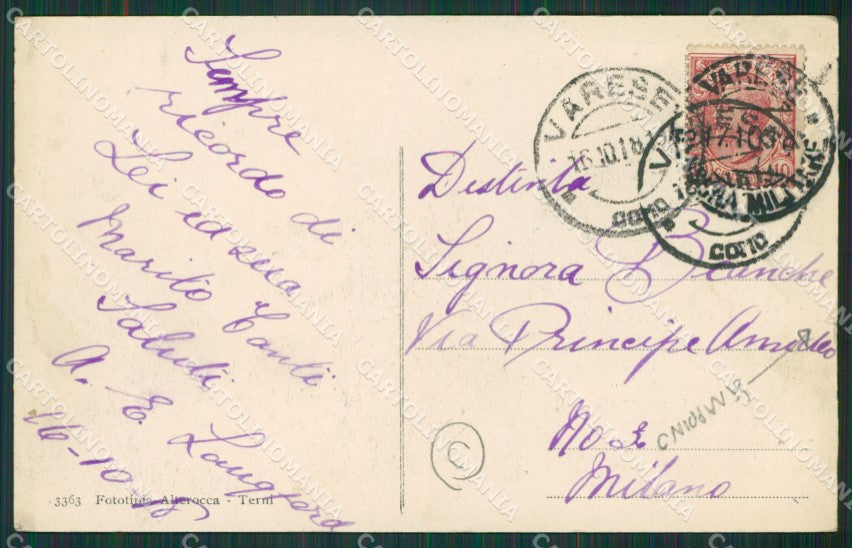 Sempre
ricordo di
Lei ed suo
Marito Tanti
Saluti
A. E. Langford
16-10-18
3363 Fototipia Alterocca - Terni
VARESE
16.10.18
COMO
VARESE
COMO
MILITARE
Distinta
Signora Blanche
Via Principe Amedeo
No 2
Milano
C
CARTOLINOMANIA